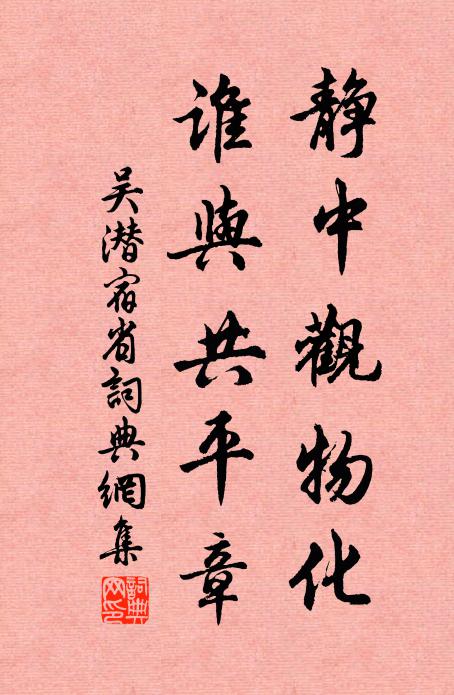 靜中觀物化
誰與共平章
吴潜宿省詞典網集
詞典網印